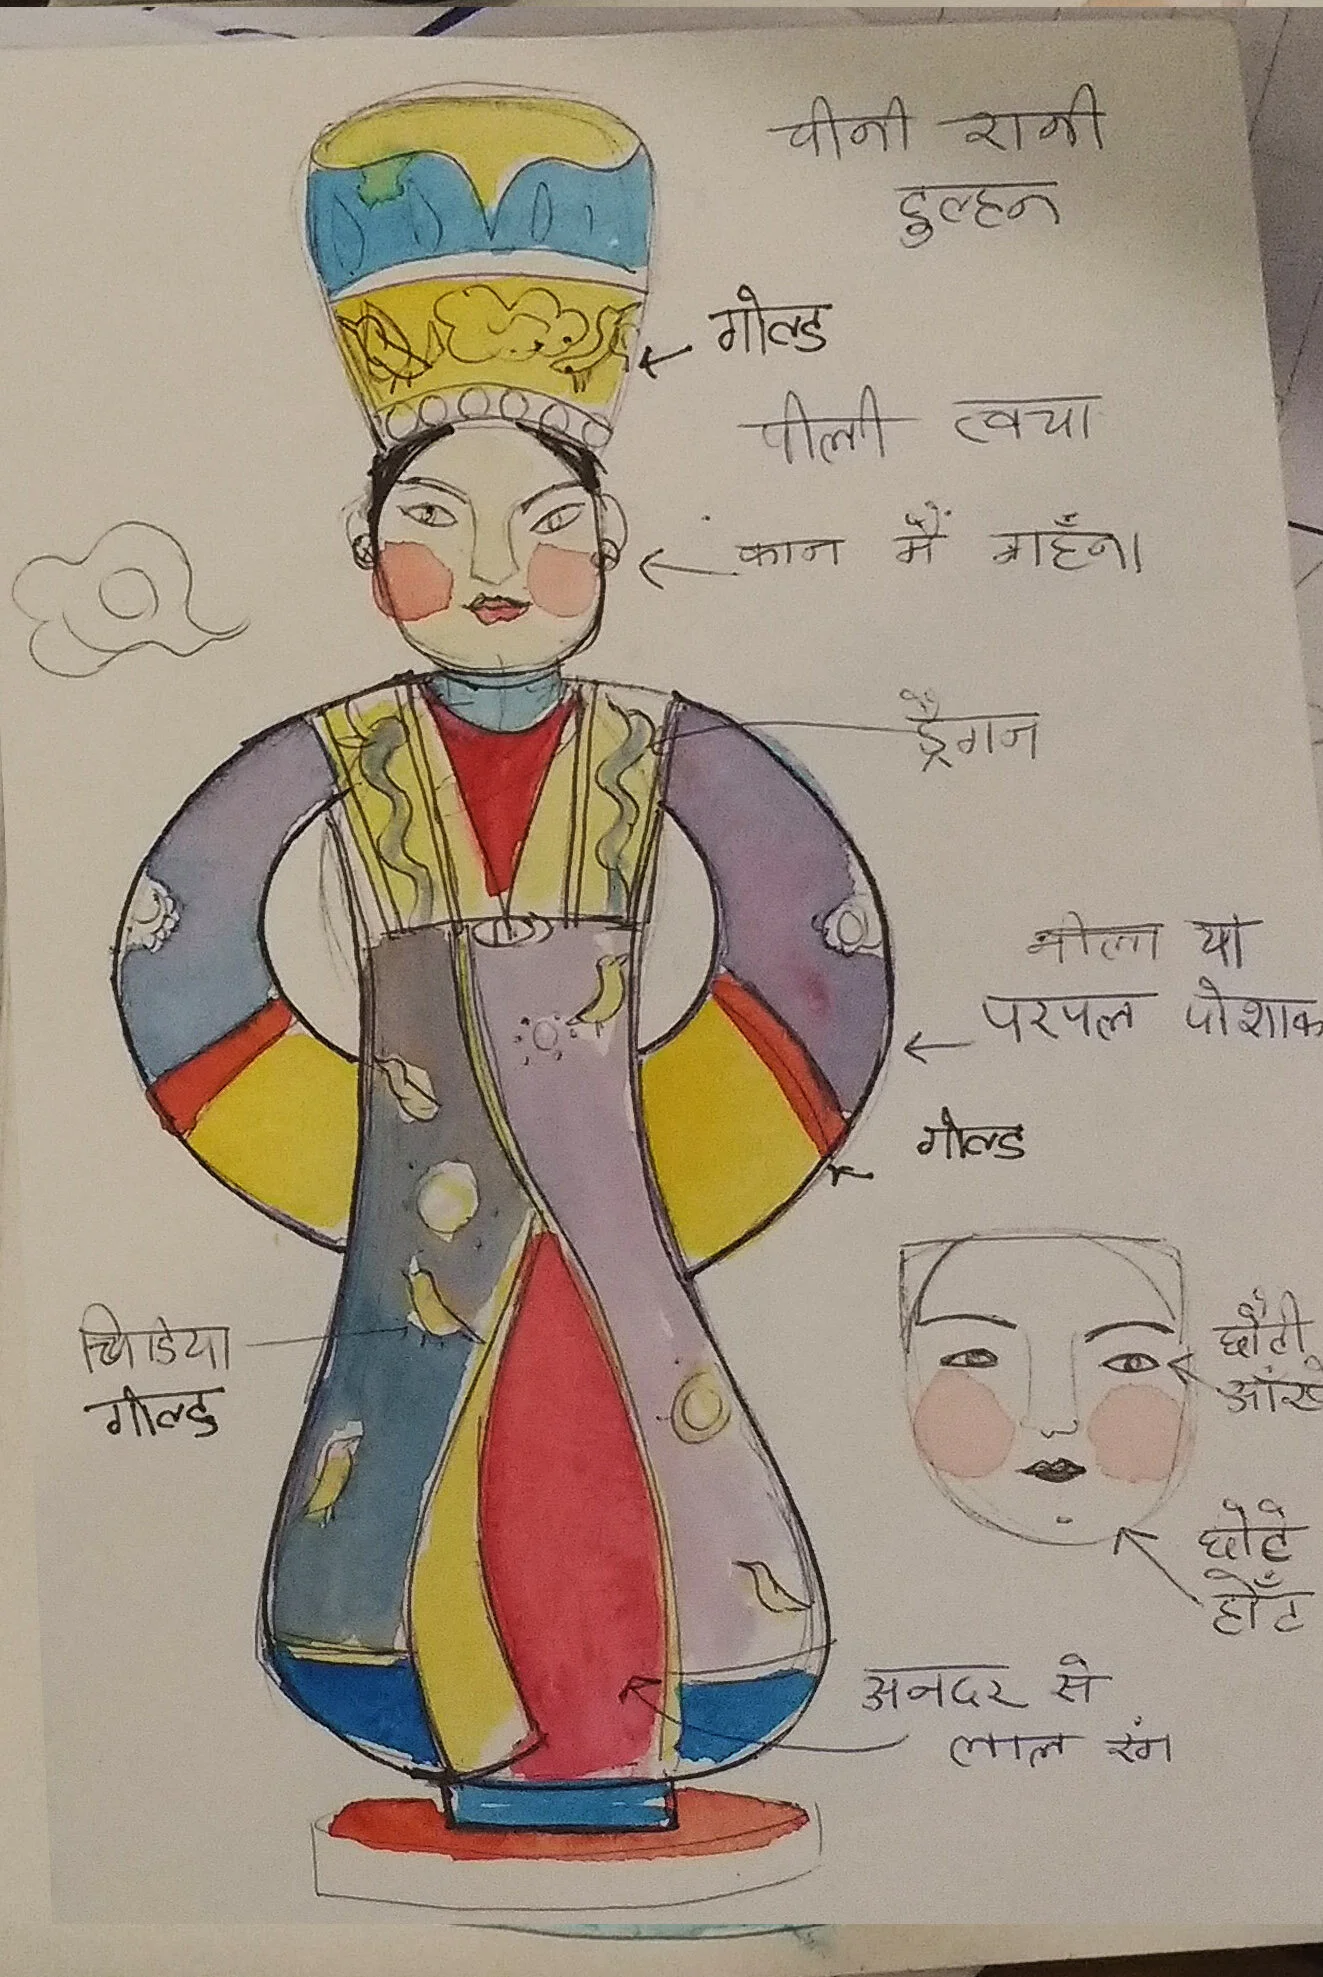 चीनी रानी
दुल्हन
गोल्ड
पीली त्वचा
कान में गहँना
ड्रैगन
नीला या
परपल पोशाक
गोल्ड
चिडिया
गोल्ड
छोटी
आंखे
छोटे
होँट
अनदर से
लाल रंग